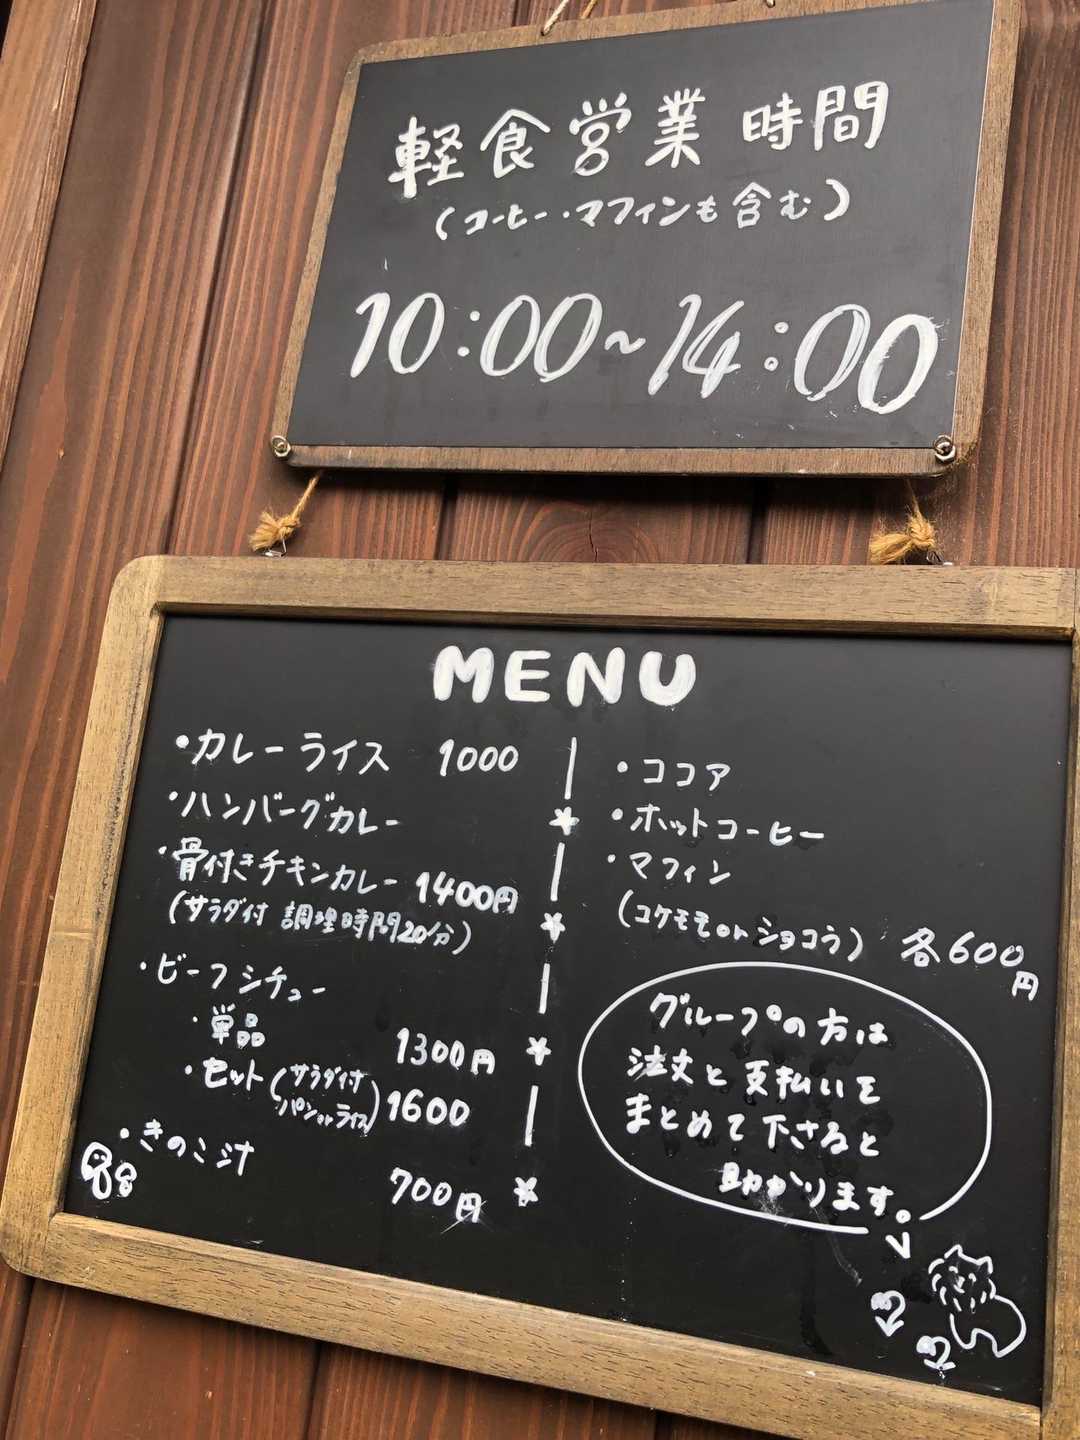 軽食営業時間
(コーヒー・マフィンも含む)
10:00~14:00
MENU
・カレーライス 1000
・ハンバーグカレー
・骨付きチキンカレー 1400円
(サラダ付 調理時間20分)
・ビーフシチュー
・単品 1300円
・セット(サラダ付 パンorライス) 1600
・きのこ汁 700円
・ココア
・ホットコーヒー
・マフィン
(コケモモorショコラ) 各600円
グループの方は
注文と支払いを
まとめて下さると
助かります。